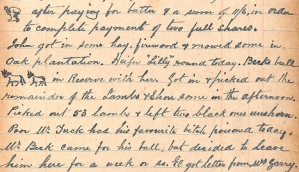 after paying for butter & a sum of 11/6, in order
to complete payment of two full shares.
John got in some hay, firewood & mowed some in
Oak plantation. Heifer Lilly round today. Becks bull
in Reserve with her. Got in & picked out the
remainder of the Lambs & shore some in the afternoon.
Picked out 53 Lambs & left two black ones unshorn.
Poor Mr Tuck has his favourite bitch poisond today.
Mr Beck came for his bull, but decided to leave
him here for a week or so. EC got letter from Mrs Garry.